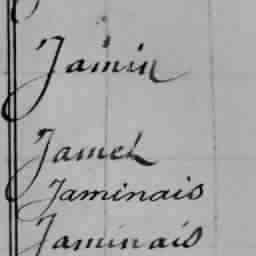 Jamin
Jamet
Jaminais
Jaminais